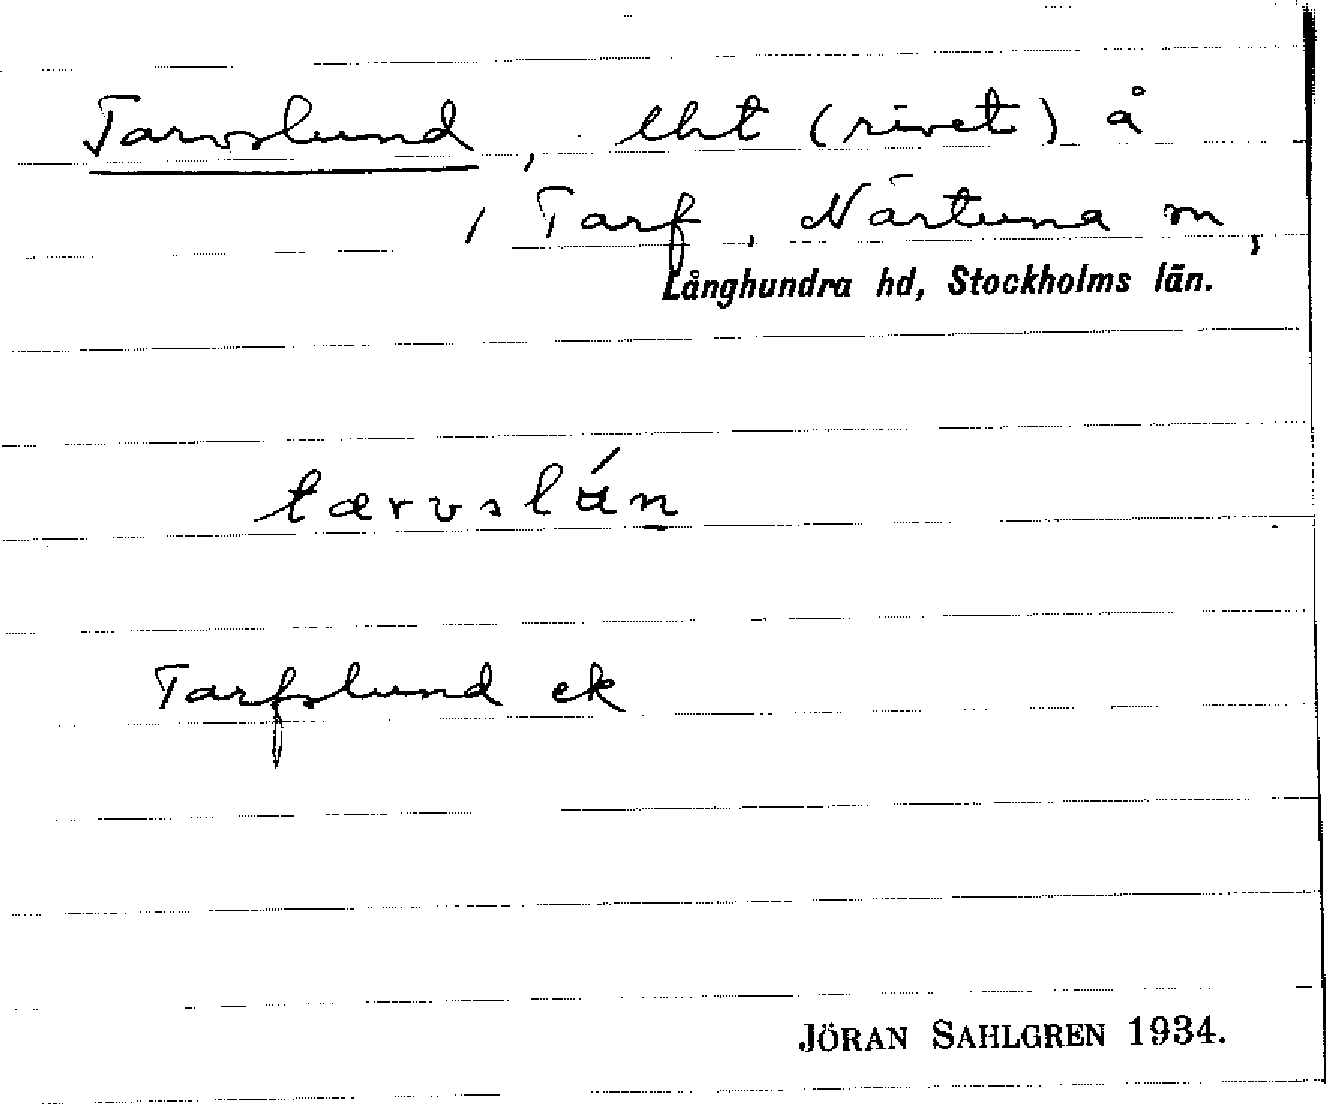 Tarvslund, lht (rivet) å
1 Tarf, Närtuna sn,
Långhundra hd, Stockholms län.
tærvslún
Tarfslund ek
JÖRAN SAHLGREN 1934.